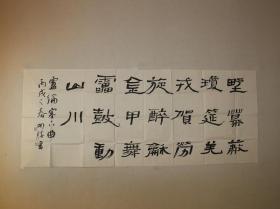 野幕蔽
瓊筵羌
戎賀勞
旋醉龢
金甲舞
靁鼓動
山川
盧綸塞下曲
丙戌之春書